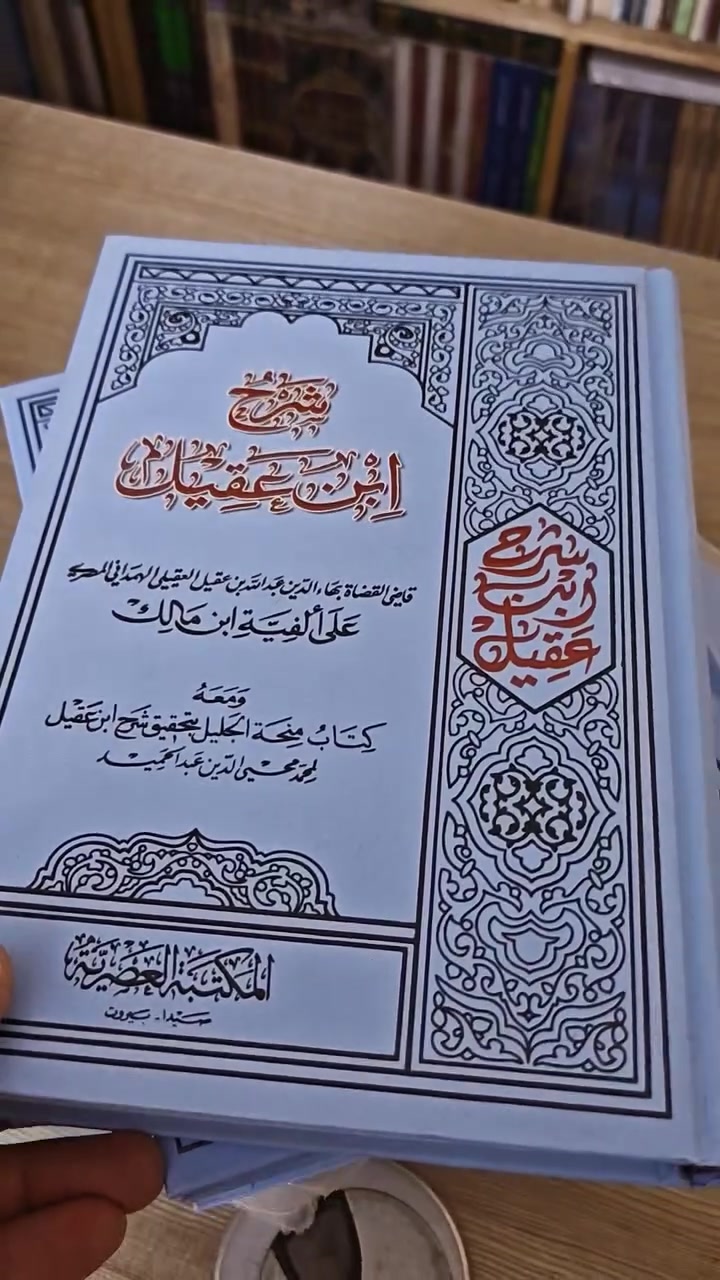 شرح
ابن عقيل
قاضي القضاة بهاء الدين عبد الله بن عقيل العقيلي الهمداني المصري
على ألفية ابن مالك
ومعه
كتاب منحة الجليل بتحقيق شرح ابن عقيل
لمحمد محيي الدين عبد الحميد
المكتبة العصرية
صيدا - بيروت
شرح
ابن
عقيل